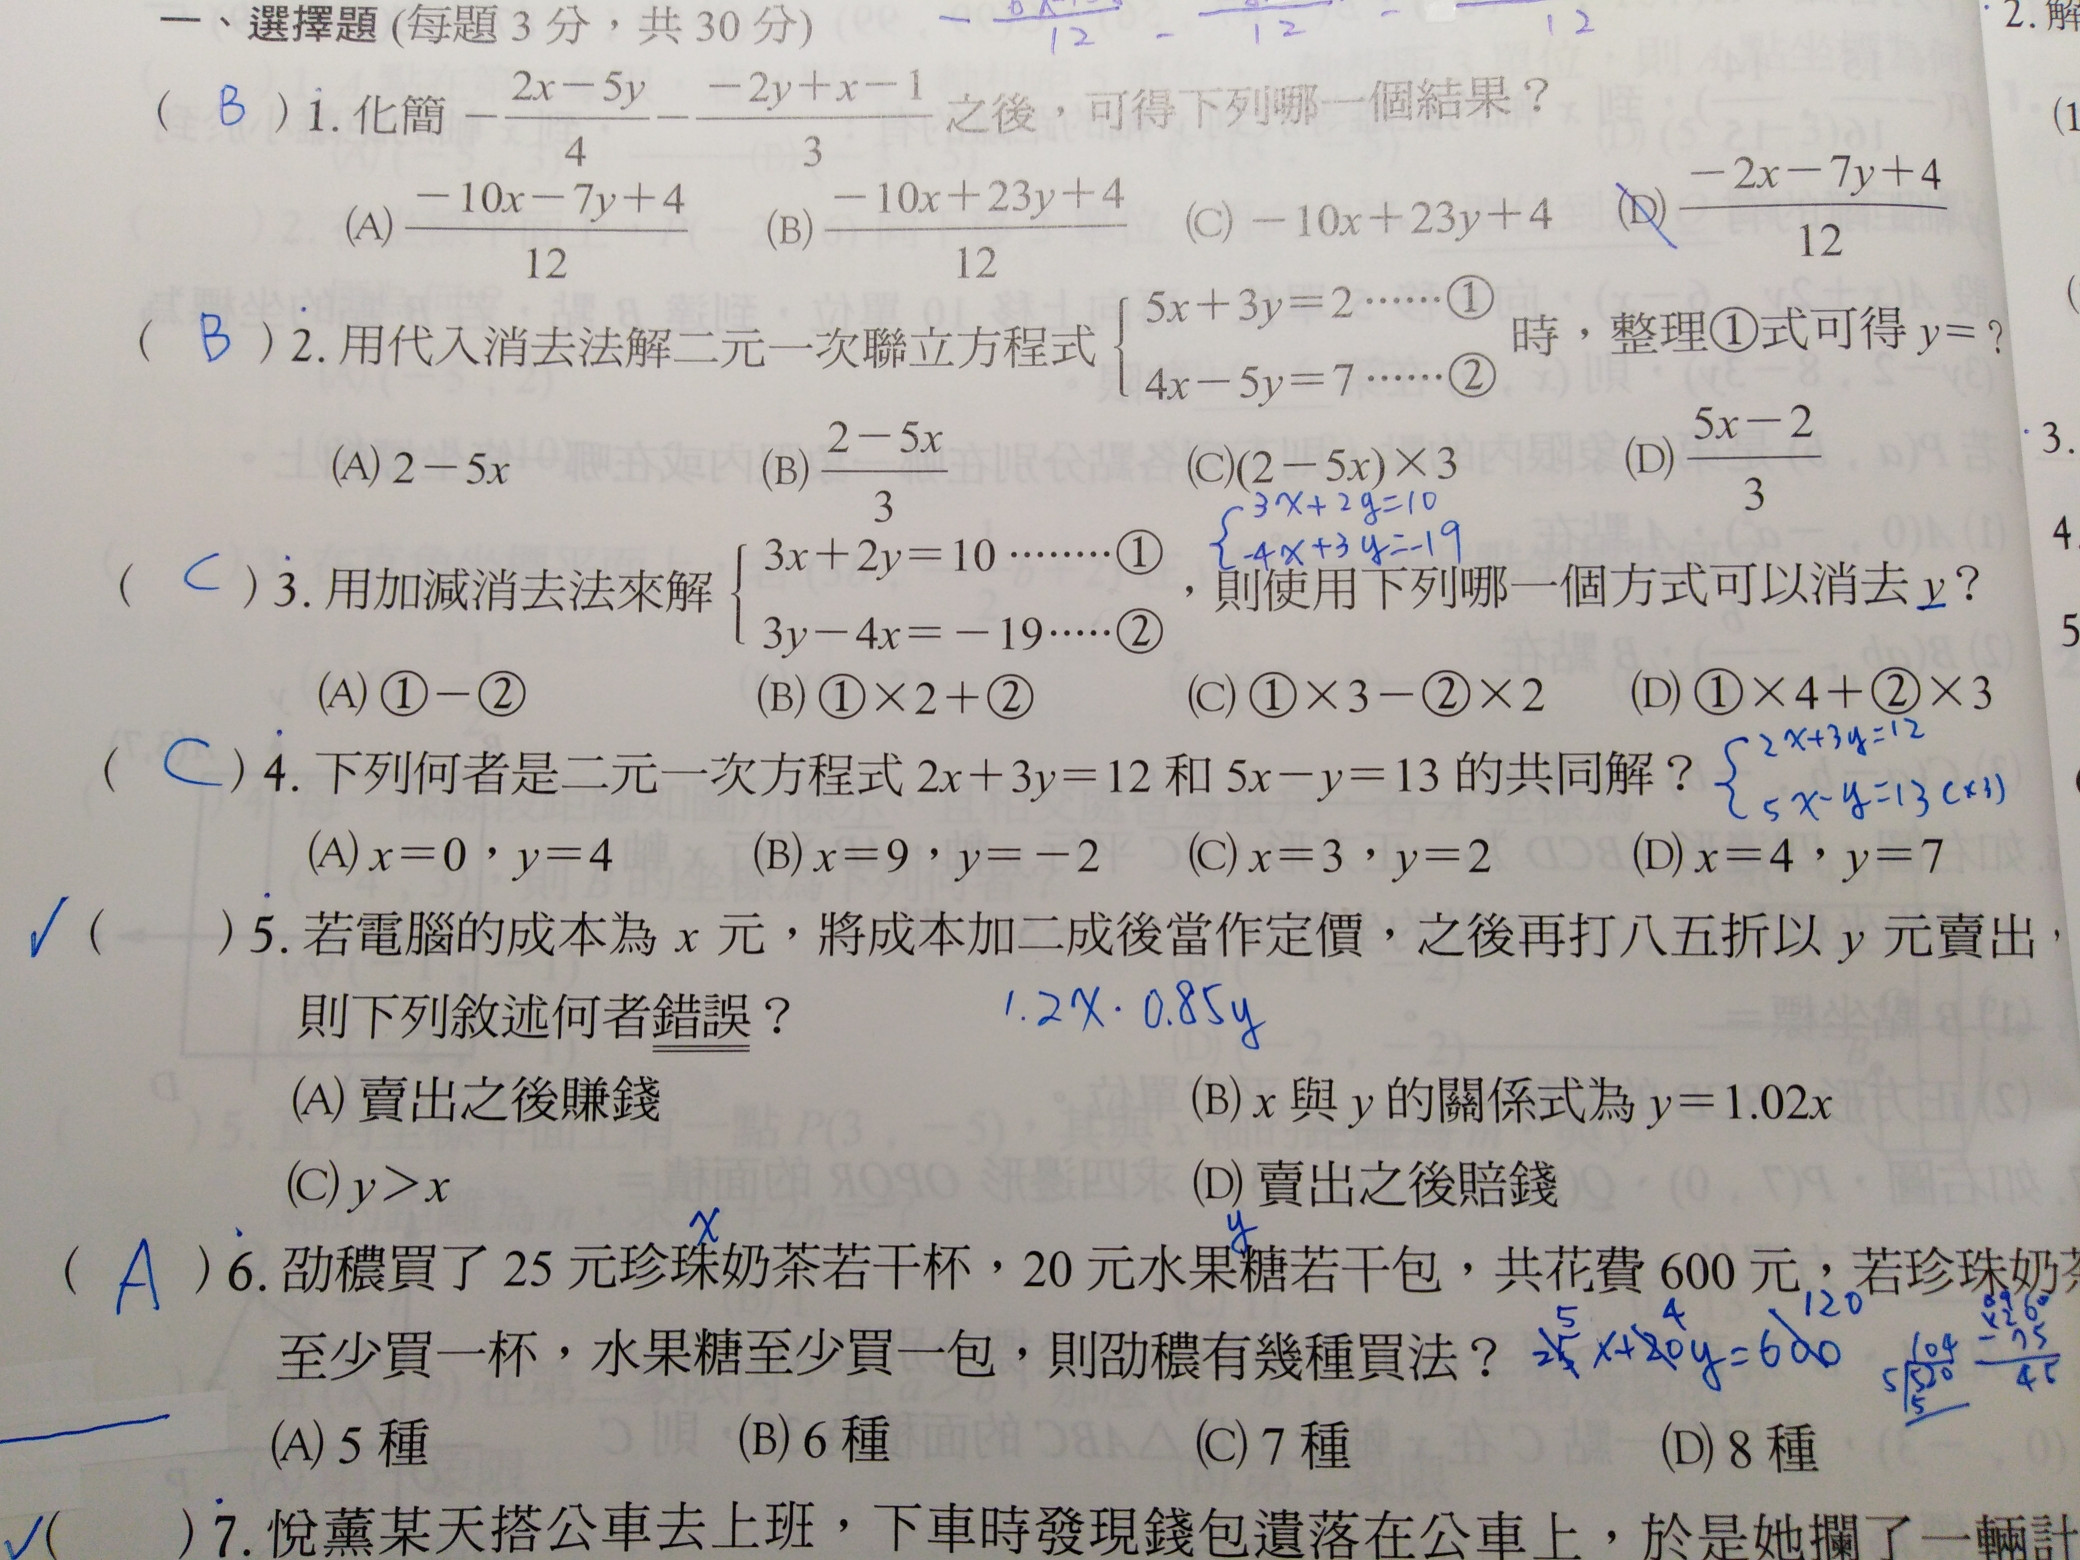 一、選擇題 (每題 3 分，共 30 分)
( B ) 1. 化簡 -(2x-5y)/4 - (-2y+x-1)/3 之後，可得下列哪一個結果？
(A) (-10x-7y+4)/12 (B) (-10x+23y+4)/12 (C) -10x+23y+4 (D) (-2x-7y+4)/12
( B ) 2. 用代入消去法解二元一次聯立方程式 { 5x+3y=2……① 4x-5y=7……② 時，整理①式可得 y=？
(A) 2-5x (B) (2-5x)/3 (C) (2-5x)×3 (D) (5x-2)/3
{ 3x+2y=10
-4x+3y=-19
( C ) 3. 用加減消去法來解 { 3x+2y=10………① 3y-4x=-19……② ，則使用下列哪一個方式可以消去 y？
(A) ①-② (B) ①×2+② (C) ①×3-②×2 (D) ①×4+②×3
( C ) 4. 下列何者是二元一次方程式 2x+3y=12 和 5x-y=13 的共同解？
{ 2x+3y=12
5x-y=13 (×3)
(A) x=0，y=4 (B) x=9，y=-2 (C) x=3，y=2 (D) x=4，y=7
✓ ( ) 5. 若電腦的成本為 x 元，將成本加二成後當作定價，之後再打八五折以 y 元賣出，
則下列敘述何者錯誤？ 1.2x · 0.85y
(A) 賣出之後賺錢 (B) x 與 y 的關係式為 y=1.02x
(C) y>x (D) 賣出之後賠錢
x y
( A ) 6. 劭穠買了 25 元珍珠奶茶若干杯，20 元水果糖若干包，共花費 600 元，若珍珠奶
5 4 120
至少買一杯，水果糖至少買一包，則劭穠有幾種買法？ 25x+20y=600
104
5 520
5
-75
45
(A) 5 種 (B) 6 種 (C) 7 種 (D) 8 種
✓ ( ) 7. 悅薰某天搭公車去上班，下車時發現錢包遺落在公車上，於是她攔了一輛計
2. 解
(1
3.
4.
5